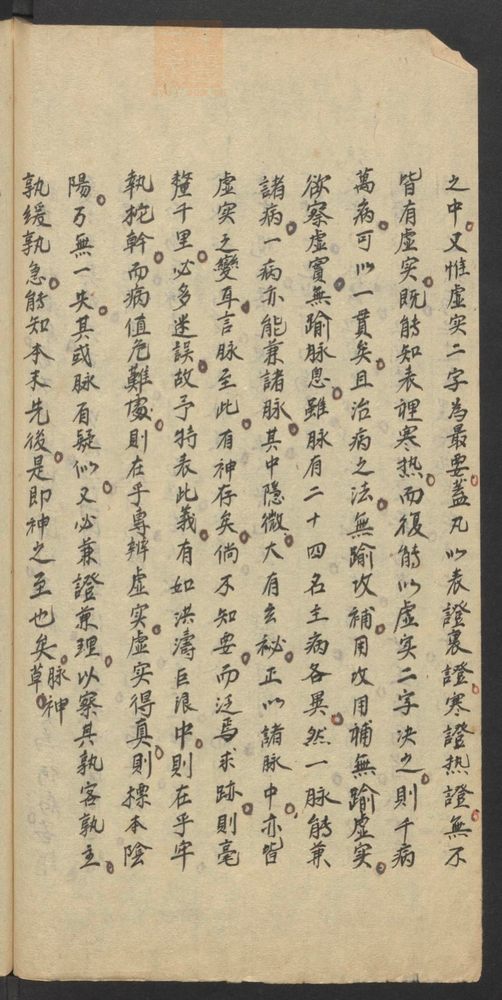 之中又惟虛实二字為最要蓋凡以表證裏證寒證熱證無不
皆有虛实既能知表裡寒熱而復能以虛实二字决之則千病
萬病可以一貫矣且治病之法無踰攻補用攻用補無踰虛实
欲察虛實無踰脉息雖脉有二十四名主病各異然一脉能兼
諸病一病亦能兼諸脉其中隱微大有玄秘正以諸脉中亦皆
虛实之變耳言脉至此有神存矣倘不知要而泛焉求跡則毫
釐千里必多迷誤故予特表此義有如洪濤巨浪中則在乎牢
執柁幹而病值危難處則在乎專辨虛实虛实得真則標本陰
陽万無一失其或脉有疑似又必兼證兼理以察其孰客孰主
孰緩孰急能知本末先後是即神之至也矣脉神
草